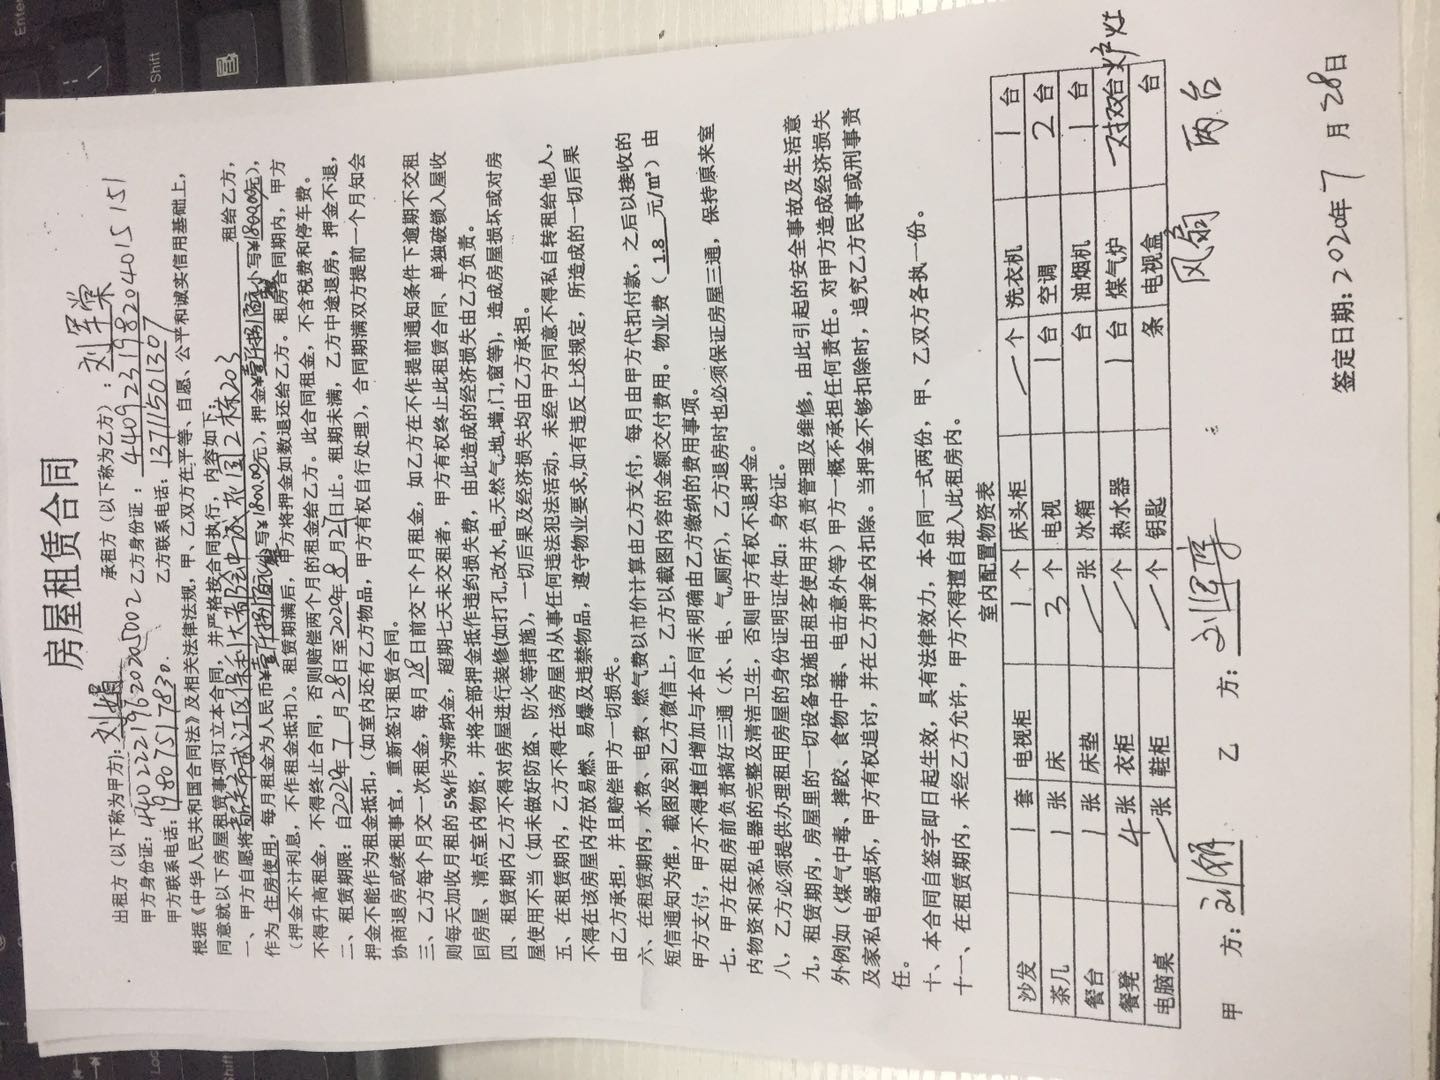 房屋租赁合同
出租方（以下称为甲方）：刘娟 承租方（以下称为乙方）：刘军荣
甲方身份证：乙方身份证：
甲方联系电话：19807517830. 乙方联系电话：13711501307
根据《中华人民共和国合同法》及相关法律法规，甲、乙双方在平等、自愿、公平和诚实信用基础上，
同意就以下房屋租赁事项订立本合同，并严格按合同执行，内容如下：
一、甲方自愿将韶关市武江区保利大都会中 2栋203 租给乙方，
作为 住房使用，每月租金为人民币¥壹仟捌佰元小写¥1800.00元），押金¥壹仟捌佰元小写¥1800.00元），
（押金不计利息，不作租金抵扣）。租赁期满后，甲方将押金如数退还给乙方。租房合同期内，甲方
不得升高租金，不得终止合同，否则赔偿两个月的租金给乙方。此合同租金，不含税费和停车费。
二、租赁期限：自2020年7月28日至2020年8月27日止。租期未满，乙方中途退房，押金不退，
押金不能作为租金抵扣，（如室内还有乙方物品，甲方有权自行处理），合同期满双方提前一个月知会
协商退房或续租事宜，重新签订租赁合同。
三、乙方每个月交一次租金，每月28日前交下个月租金，如乙方在不作提前通知条件下逾期不交租
则每天加收月租的 5%作为滞纳金，超期七天未交租者，甲方有权终止此租赁合同、单独破锁入屋收
回房屋、清点室内物资，并将全部押金抵作违约损失费，由此造成的经济损失由乙方负责。
四、租赁期内乙方不得对房屋进行装修(如打孔,改水,电,天然气,地,墙,门,窗等)，造成房屋损坏或对房
屋使用不当（如未做好防盗、防火等措施），一切后果及经济损失均由乙方承担。
五、在租赁期内，乙方不得在该房屋内从事任何违法犯法活动，未经甲方同意不得私自转租给他人，
不得在该房屋内存放易燃、易爆及违禁物品，遵守物业要求,如有违反上述规定，所造成的一切后果
由乙方承担，并且赔偿甲方一切损失。
六、在租赁期内，水费、电费、燃气费以市价计算由乙方支付，每月由甲方代扣付款，之后以接收的
短信通知为准，截图发到乙方微信上，乙方以截图内容的金额交付费用。物业费（ 1.8 元/m²）由
甲方支付，甲方不得擅自增加与本合同未明确由乙方缴纳的费用事项。
七．甲方在租房前负责搞好三通（水、电、气,厕所），乙方退房时也必须保证房屋三通，保持原来室
内物资和家私电器的完整及清洁卫生，否则甲方有权不退押金。
八，乙方必须提供办理租用房屋的身份证明证件如：身份证。
九，租赁期内，房屋里的一切设备设施由租客使用并负责管理及维修，由此引起的安全事故及生活意
外例如（煤气中毒、摔跤、食物中毒、电击意外等）甲方一概不承担任何责任。对甲方造成经济损失
及家私电器损坏，甲方有权追讨，并在乙方押金内扣除。当押金不够扣除时，追究乙方民事或刑事责
任。
十、本合同自签字即日起生效，具有法律效力，本合同一式两份，甲、乙双方各执一份。
十一、在租赁期内，未经乙方允许，甲方不得擅自进入此租房内。
室内配置物资表
沙发 1 套 电视柜 1 个 床头柜 一个 洗衣机 1 台
茶几 1 张 床 3 个 电视 1 台 空调 2 台
餐台 1 张 床垫 张 冰箱 台 油烟机 1 台
餐凳 4 张 衣柜 个 热水器 1 台 煤气炉 双台炉灶
电脑桌 张 鞋柜 个 钥匙 条 电视盒 台
风扇 两台
甲 方：刘娟 乙 方：
签定日期：2020年7月28日